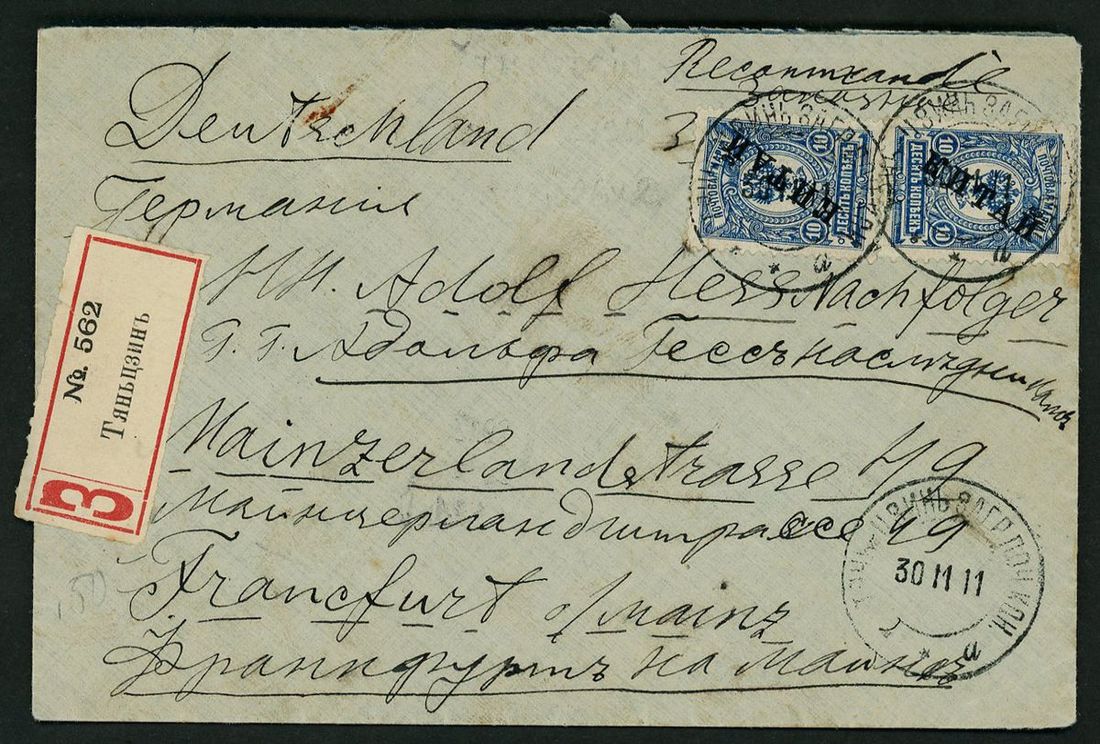 Recommandie
Заказное
Deutschland
Германия
HH. Adolf Hess Nachfolger
Г. Г. Адольфа Гессъ наслѣдникамъ
Mainzerlandstrasse 49
Майнцерландштрассе 49
Francfurt o/mainz
Франкфуртъ на Майнѣ
№. 562
Тяньцзинь
З
КИТАЙ
10 ДЕСЯТЬ КОПѢЕКЪ 10
КИТАЙ
10 ДЕСЯТЬ КОПѢЕКЪ 10
ЗАГР. ПОЧ. КОН.
30 11 11
а